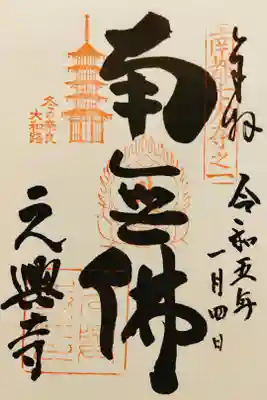 奉拝
令和五年
一月四日
南都七大寺之一
南無佛
冬の奈良
大和路
元興寺